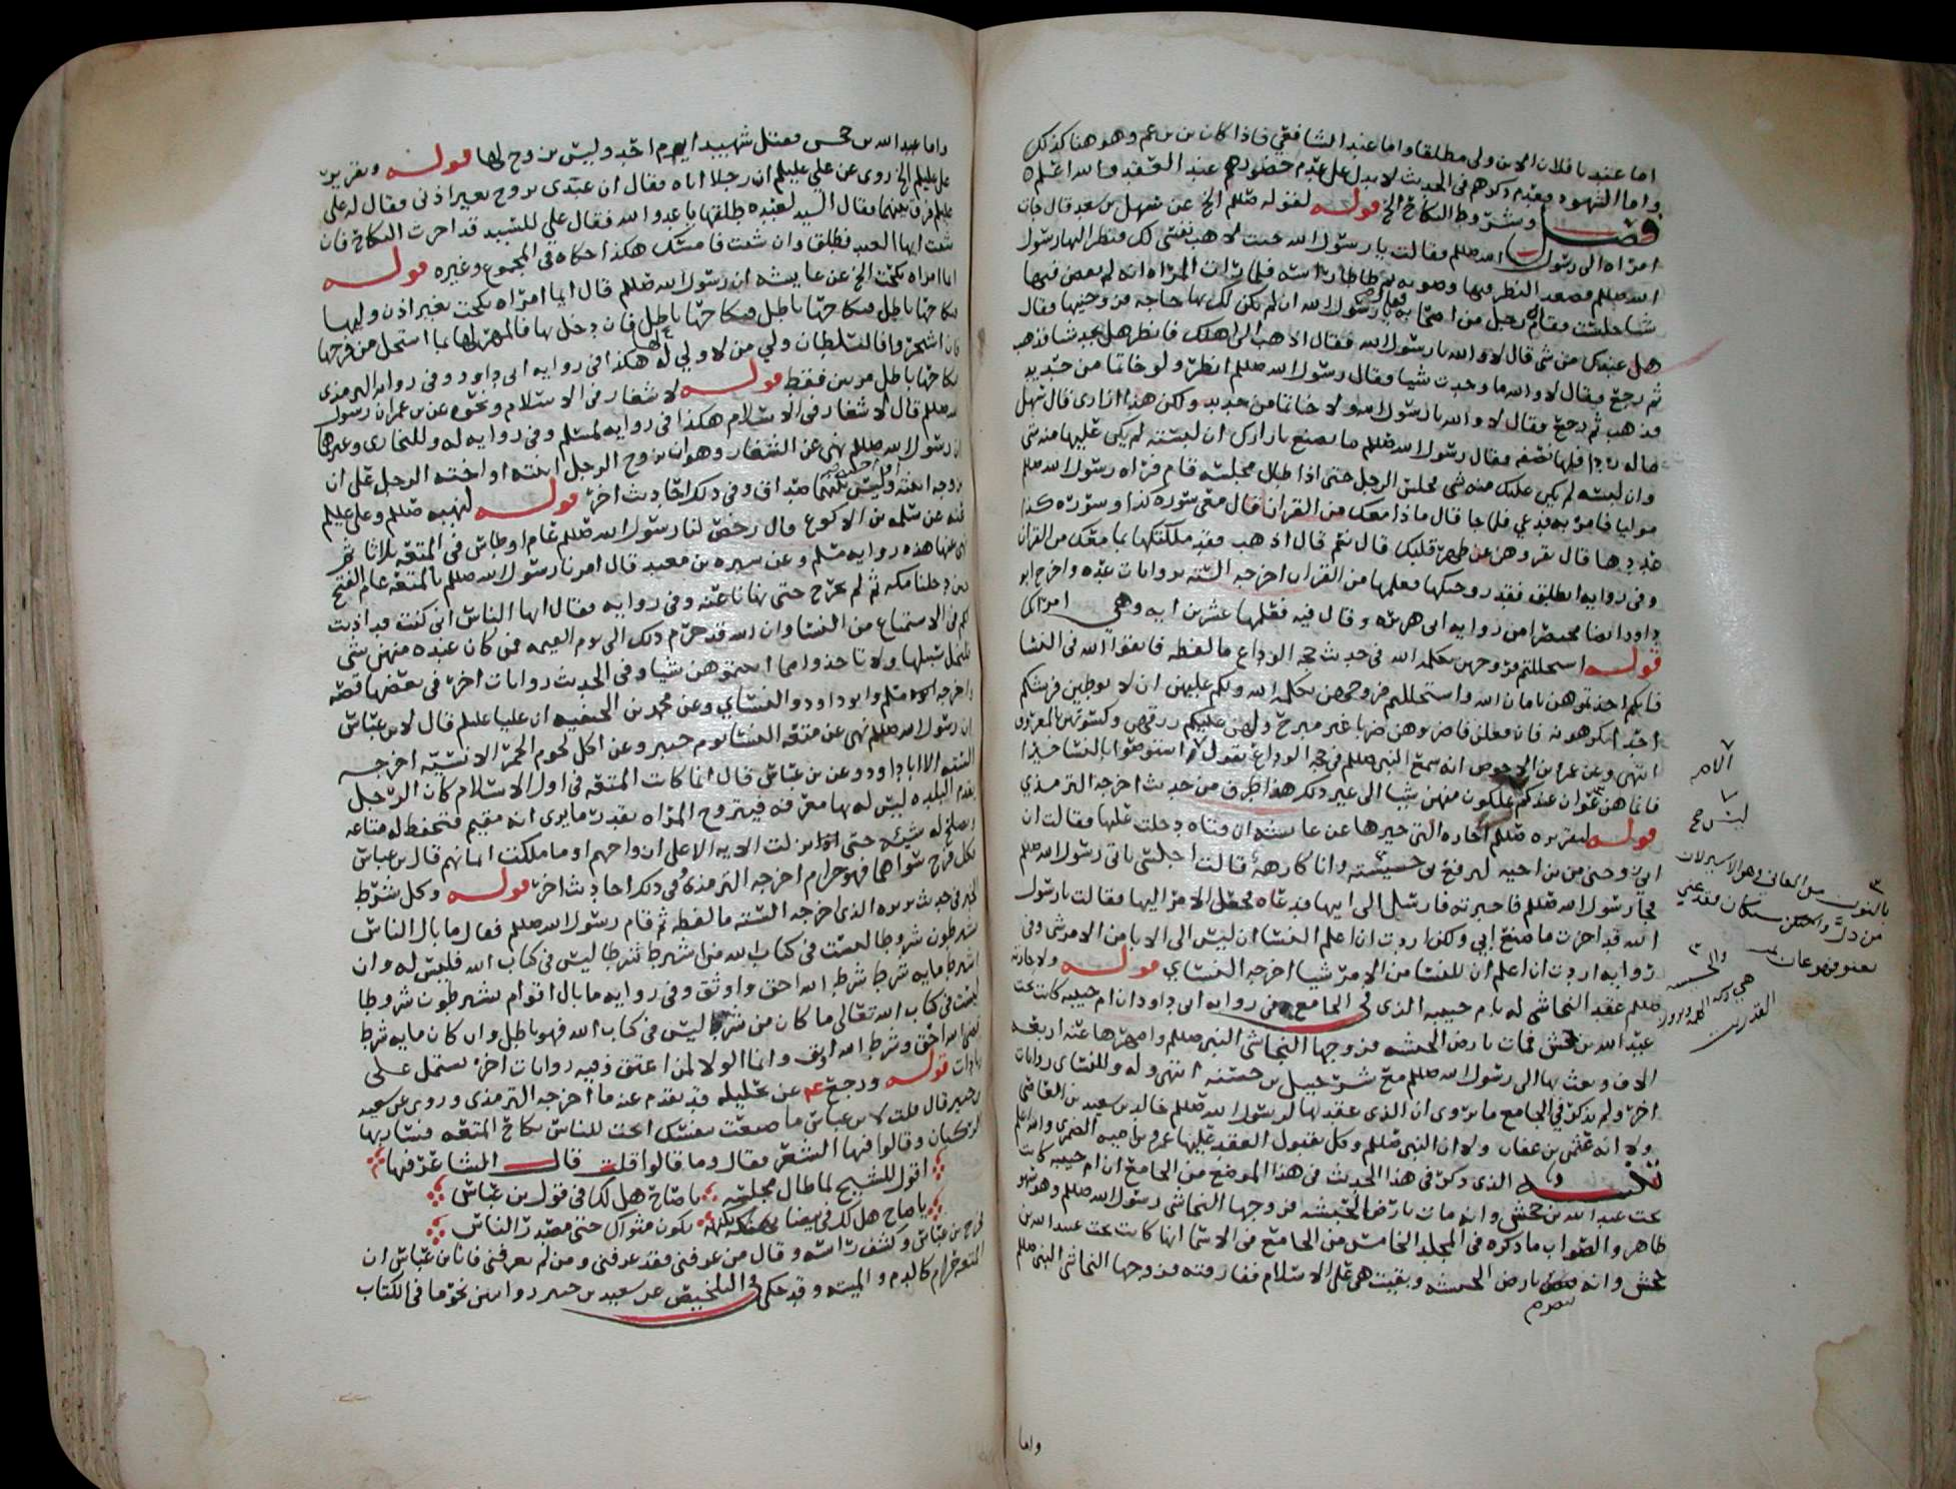 اما عندنا فلان الابن ولى مطلقا واما عند الشافعي فاذا كان بن بن عم وهو هنا كذلك
واما الشهود فعدم ذكرهم فى الحديث لا يدل على عدم حضورهم عند العقد والله اعلم
فصل وشروط النكاح الخ قوله لقوله صللم الخ عن سهل بن سعد قال جات
امراه الى رسول الله صللم فقالت يا رسول الله جئت لاهب نفسى لك فنظر اليها رسول
الله صللم فصعد النظر فيها وصوبه ثم طاطا راسه فلما رات المراه انه لم يقض فيها
شيا جلست فقام رجل من اصحابه فقال يا رسول الله ان لم تكن لك بها حاجه فزوجنيها فقال
هل عندك من شى قال لا والله يا رسول الله فقال اذهب الى اهلك فانظر هل تجد شيا فذهب
ثم رجع فقال لا والله ما وجدت شيا فقال رسول الله صللم انظر ولو خاتما من حديد
فذهب ثم رجع فقال لا والله يا رسول الله ولا خاتما من حديد ولكن هذا ازارى قال سهل
ماله ردا فلها نصفه فقال رسول الله صللم ما تصنع بازارك ان لبسته لم يكن عليها منه شى
وان لبسته لم يكن عليك منه شى فجلس الرجل حتى اذا طال مجلسه قام فراه رسول الله صللم
موليا فامر به فدعي فلما جا قال ماذا معك من القران قال معى سوره كذا وسوره كذا
عددها قال تقروهن عن ظهر قلبك قال نعم قال اذهب فقد ملكتكها بما معك من القران
وفى روايه انطلق فقد زوجتكها فعلمها من القران اخرجه السته بروايات عده واخرج ابو
داود ايضا مختصرا من روايه ابى هريره وقال فيه فعلمها عشرين ايه وهي امراتك
قوله استحللتم فروجهن بكلمه الله فى حديث حجه الوداع ما لفظه فاتقوا الله فى النسا
فانكم اخذتموهن بامان الله واستحللتم فروجهن بكلمه الله ولكم عليهن ان لا يوطين فرشكم
احدا تكرهونه فان فعلن فاضربوهن ضربا غير مبرح ولهن عليكم رزقهن وكسوتهن بالمعروف
انتهى وعن عمرو بن الاحوص انه سمع النبى صللم فى حجه الوداع يقول واستوصوا بالنسا خيرا
فانما هن عوان عندكم ليس تملكون منهن شيا الى غير ذلك هذا طرف من حديث اخرجه الترمذي
قوله لتقريره صللم اجازه التى خيرها عن عايشه ان فتاه دخلت عليها فقالت ان
ابى زوجنى من بن اخيه ليرفع بى خسيسته وانا كارهه قالت اجلسى حتى ياتى رسول الله صللم
فجا رسول الله صللم فاخبرته فارسل الى ابيها فدعاه فجعل الامر اليها فقالت يا رسول
الله قد اجزت ما صنع ابي ولكن اردت ان اعلم النسا ان ليس الى الابا من الامر شى وفى
روايه اردت ان اعلم ان للنسا من الامر شيا اخرجه النساي قوله ولاجازته
صللم عقد النجاشى له بام حبيبه الذى فى الجامع من روايه ابى داود ان ام حبيبه كانت تحت
عبد الله بن جحش فمات بارض الحبشه فزوجها النجاشى النبى صللم وامهرها عنه اربعه
الاف وبعث بها الى رسول الله صللم مع شرحبيل بن حسنه انتهى وله وللنساى روايات
اخر ولم يذكر فى الجامع ما يروى ان الذى عقد بها لرسول الله صللم خالد بن سعيد بن العاصى
ولا انه عثمن بن عفان ولا ان النبى صللم وكل بقبول العقد عليها عمرو بن اميه الضمرى والله اعلم
تنبيه الذى ذكره فى هذا الحديث فى هذا الموضع من الجامع ان ام حبيبه كانت
تحت عبد الله بن جحش وانه مات بارض الحبشه فزوجها النجاشى رسول الله صللم وهو سهو
ظاهر والصواب ما ذكره فى المجلد الخامس من الجامع فى الاسما انها كانت تحت عبيد الله بن
جحش وانه تنصر بارض الحبشه وبقيت هى على الاسلام ففارقته فزوجها النجاشى النبى صللم
واما
واما عبد الله بن جحش فقتل شهيدا يوم احد وليس بزوج لها قوله وتقرير
على عليلم الخ روى عن على عليلم ان رجلا اتاه فقال ان عبدى تزوج بغير اذنى فقال له على
عليلم فرق بينهما فقال السيد لعبده طلقها يا عدو الله فقال على للسيد قد اجزت النكاح فان
شئت ايها العبد فطلق وان شئت فامسك هكذا حكاه فى المجموع وغيره قوله
ايما امراه نكحت الخ عن عايشه ان رسول الله صللم قال ايما امراه نكحت بغير اذن وليها
نكاحها باطل فنكاحها باطل فنكاحها باطل فان دخل بها فالمهر لها بما استحل من فرجها
فان اشتجروا فالسلطان ولي من لا ولي له هكذا فى روايه ابى داود وفى روايه الترمذى
نكاحها باطل مرتين فقط قوله لا شغار فى الاسلام ونحوه عن بن عمر ان رسول
الله صللم قال لا شغار فى الاسلام هكذا فى روايه لمسلم وفى روايه له وللبخارى وغيرهما
ان رسول الله صللم نهى عن الشغار وهو ان يزوج الرجل ابنته او اخته الرجل على ان
يزوجه ابنته او اخته وليس بينهما صداق وفى ذلك احاديث اخر قوله لنهيه صللم وعلى عليلم
عنه عن سلمه بن الاكوع قال رخص لنا رسول الله صللم عام اوطاس فى المتعه ثلاثا ثم
نهى عنها هذه روايه مسلم وعن سبره بن معبد قال امرنا رسول الله صللم بالمتعه عام الفتح
حين دخلنا مكه ثم لم نخرج حتى نهانا عنه وفى روايه فقال ايها الناس انى كنت قد اذنت
لكم فى الاستمتاع من النسا وان الله قد حرم ذلك الى يوم القيمه فمن كان عنده منهن شى
فليخل سبيلها ولا تاخذوا مما اتيتموهن شيا وفى الحديث روايات اخر فى بعضها قصه
واخرجه مسلم وابو داود والنساي وعن محمد بن الحنفيه ان عليا عليلم قال لابن عباس
ان رسول الله صللم نهى عن متعه النسا يوم خيبر وعن اكل لحوم الحمر الانسيه اخرجه
السته الا ابا داود وعن بن عباس قال انما كانت المتعه فى اول الاسلام كان الرجل
يقدم البلده ليس له بها معرفه فيتزوج المراه بقدر ما يرى انه مقيم فتحفظ له متاعه
وتصلح له شيئه حتى نزلت الايه الا على ازواجهم او ما ملكت ايمانهم قال بن عباس
فكل فرج سواهما فهو حرام اخرجه الترمذى وفى ذلك احاديث اخر قوله وكل شرط
الخ فى حديث بريره الذى اخرجه السته ما لفظه ثم قام رسول الله صللم فقال ما بال الناس
يشترطون شروطا ليست فى كتاب الله من اشترط شرطا ليس فى كتاب الله فليس له وان
اشترط مايه شرط شرط الله احق واوثق وفى روايه ما بال اقوام يشترطون شروطا
ليست فى كتاب الله تعالى ما كان من شرط ليس فى كتاب الله فهو باطل وان كان مايه شرط
قضا الله احق وشرط الله اوثق وانما الولا لمن اعتق وفيه روايات اخر تشتمل على
زيادات قوله ورجع عن تحليله قد تقدم عنه ما اخرجه الترمذى وروى عن سعيد
بن جبير قال قلت لابن عباس ما صنعت بنفسك ابحت للناس نكاح المتعه فسارت بها
الركبان وقالوا فيها الشعر فقال وما قالوا قلت قال الشاعر فيها
اقول للشيخ لما طال مجلسه يا صاح هل لك فى قول بن عباس
يا صاح هل لك فى بيضا بهكنه تكون مثواك حتى مصدر الناس
فخرج بن عباس وكشف راسه وقال من عرفنى فقد عرفنى ومن لم يعرفنى فانا بن عباس ان
المتعه حرام كالدم والميته وقد حكى فى التلخيص عن سعيد بن جبير روايتين نحو ما فى الكتاب